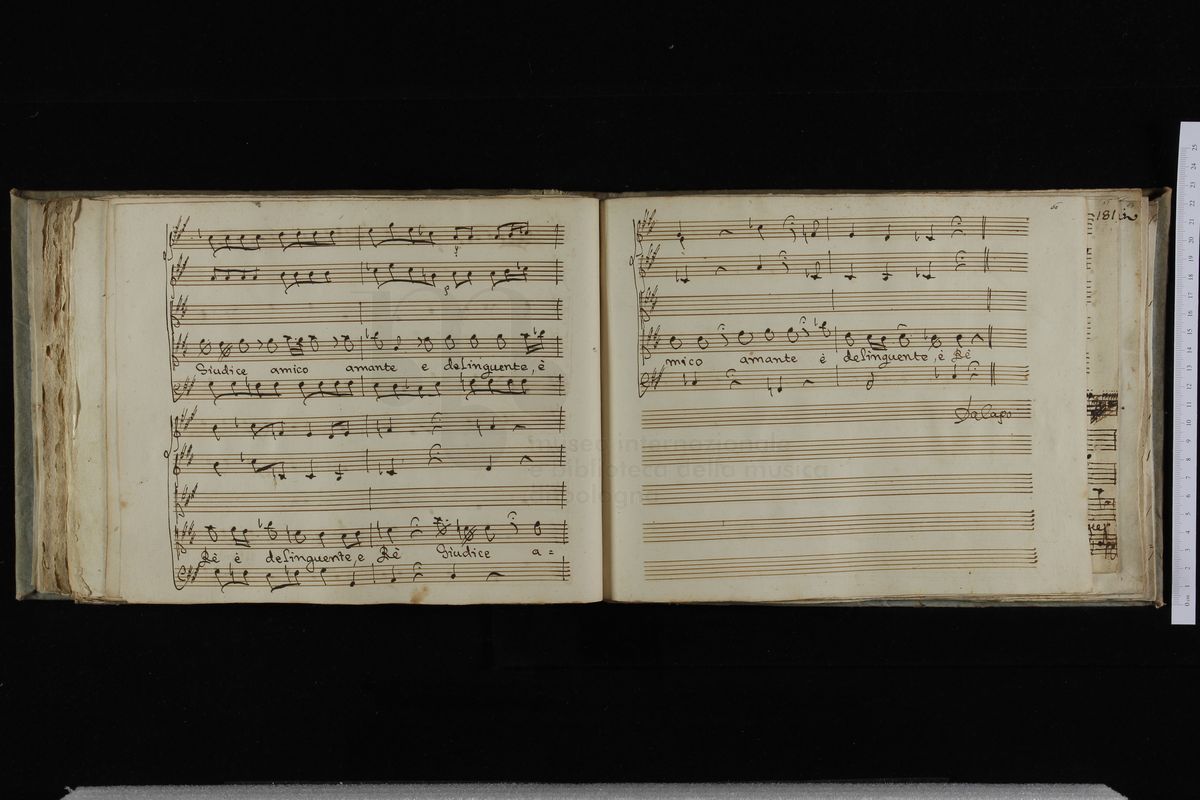 Giudice amico amante e delinguente, è
Rè è delinguente, e Rè Giudice a=
56
mico amante è delinguente, è Rè
DaCapo
181
museo internazionale
e biblioteca della musica
di bologna